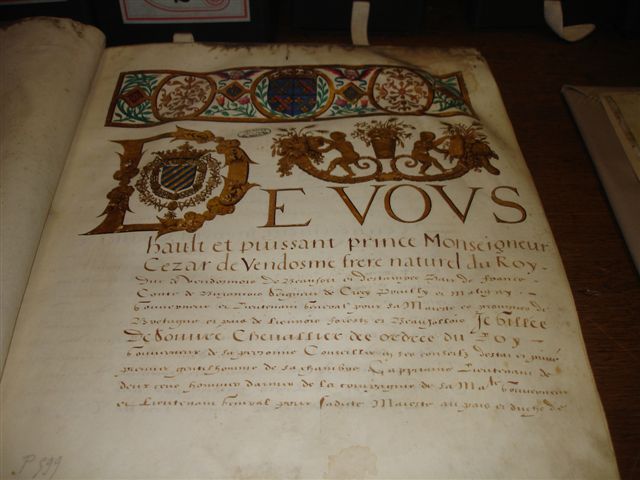 DE VOVS
hault et puissant prince Monseigneur
Cezar de Vendosme frere naturel du Roy.
Duc de Vendomois de Beaufort et destampes Pair de France
Conte de Seigneur de
Gouverneur et Lieutenant General pour sa Maieste en
Bretagne et pais de forestz et Beaujollois Je Gilles
De Souvre Chevallier des ordres du Roy
Gouverneur de sa personne Conseiller en ses conseilz destat et privé
premier gentilhomme de sa chambre Cappitaine Lieutenant de
deux cens hommes darmes de la compagnie de sa Ma.te Gouverneur
et Lieutenant General pour sadite Maieste au pais et duche de
P 599